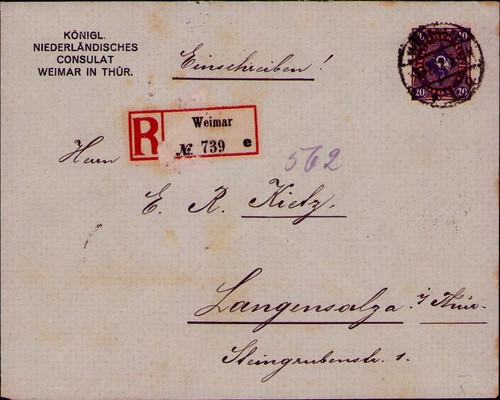 KÖNIGL.
NIEDERLÄNDISCHES
CONSULAT
WEIMAR IN THÜR.
Einschreiben!
20 20
20 20
R
Weimar
№ 739 e
562
Herrn
E. R. Kietz.
Langensalza i/ Thür.
Steingrubenstr. 1.